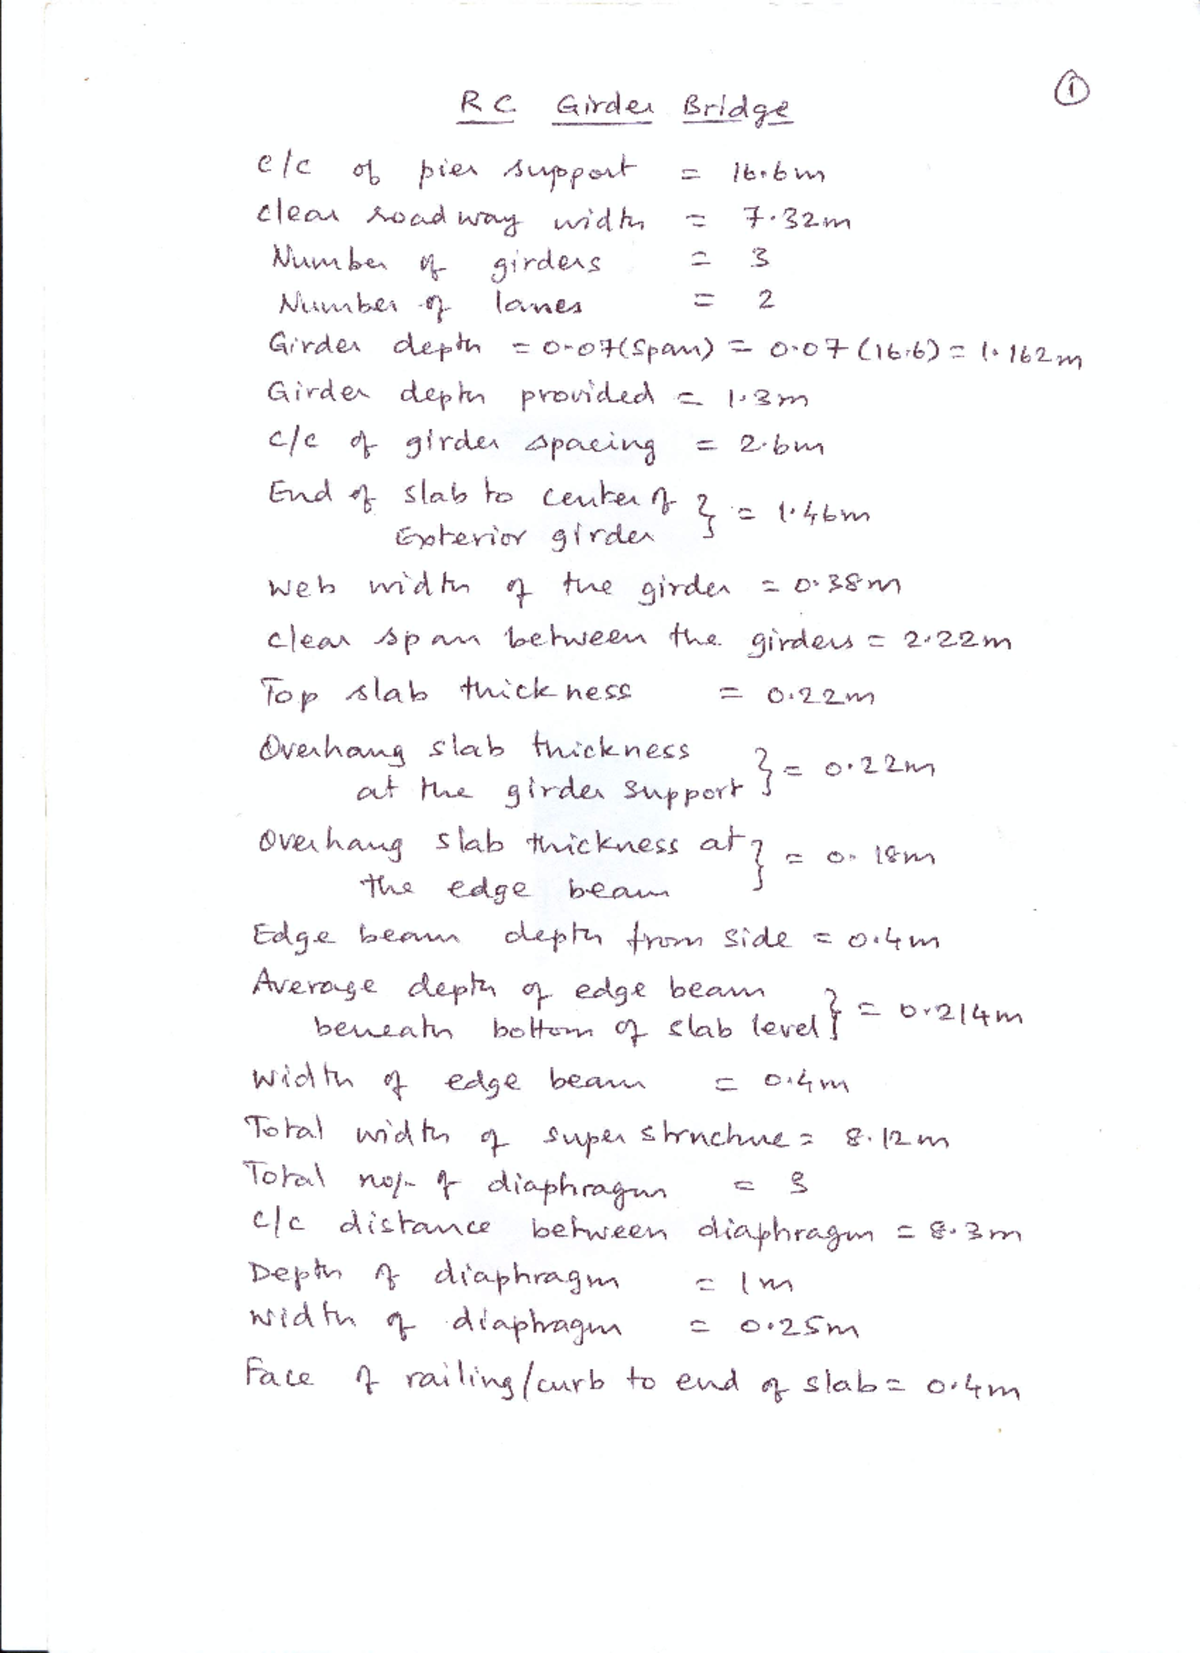 1
RC Girder Bridge
c/c of pier support = 16.6m
clear roadway width = 7.32m
Number of girders = 3
Number of lanes = 2
Girder depth = 0.07(Span) = 0.07 (16.6) = 1.162m
Girder depth provided = 1.3m
c/c of girder spacing = 2.6m
End of slab to center of
Exterior girder } = 1.46m
Web width of the girder = 0.38m
clear span between the girders = 2.22m
Top slab thickness = 0.22m
Overhang slab thickness
at the girder support } = 0.22m
Overhang slab thickness at
the edge beam } = 0.18m
Edge beam depth from side = 0.4m
Average depth of edge beam
beneath bottom of slab level } = 0.214m
Width of edge beam = 0.4m
Total width of super structure = 8.12m
Total no/- of diaphragm = 3
c/c distance between diaphragm = 8.3m
Depth of diaphragm = 1m
Width of diaphragm = 0.25m
Face of railing/curb to end of slab = 0.4m